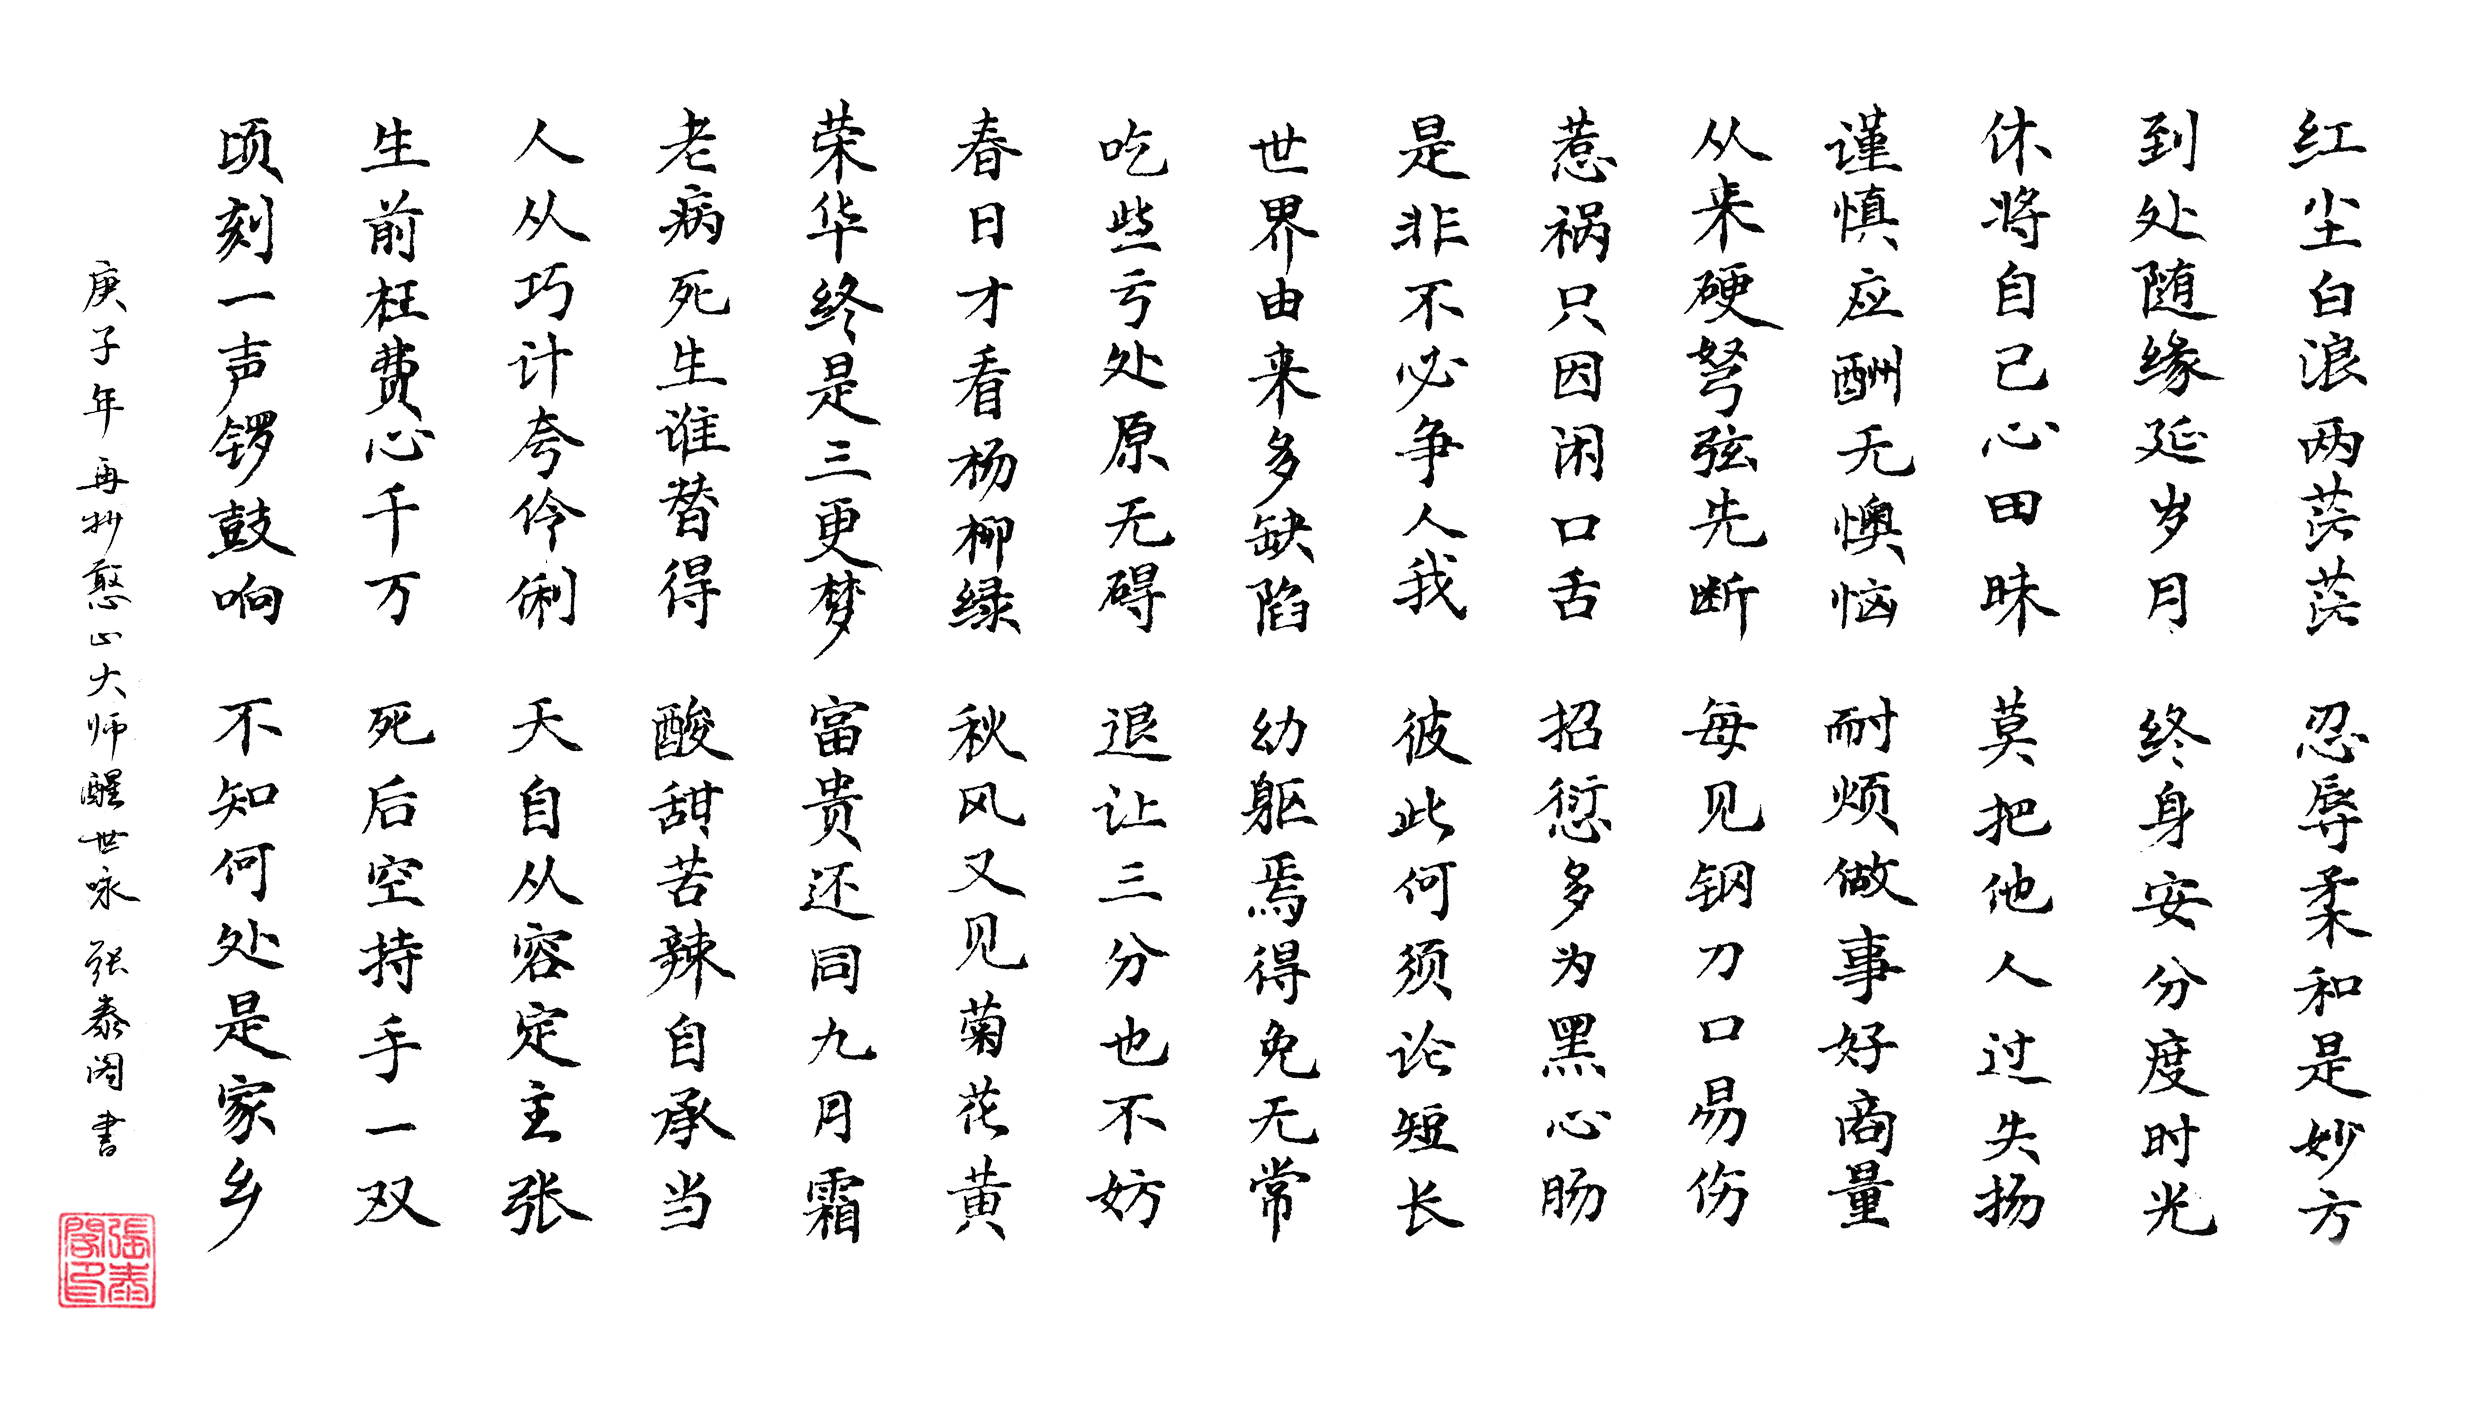 红尘白浪两茫茫 忍辱柔和是妙方
到处随缘延岁月 终身安分度时光
休将自己心田昧 莫把他人过失扬
谨慎应酬无懊恼 耐烦做事好商量
从来硬弩弦先断 每见钢刀口易伤
惹祸只因闲口舌 招愆多为黑心肠
是非不必争人我 彼此何须论短长
世界由来多缺陷 幼躯焉得免无常
吃些亏处原无碍 退让三分也不妨
春日才看杨柳绿 秋风又见菊花黄
荣华终是三更梦 富贵还同九月霜
老病死生谁替得 酸甜苦辣自承当
人从巧计夸伶俐 天自从容定主张
生前枉费心千万 死后空持手一双
顷刻一声锣鼓响 不知何处是家乡
庚子年 再抄憨山大师醒世咏 张泰阁書
張泰閣印